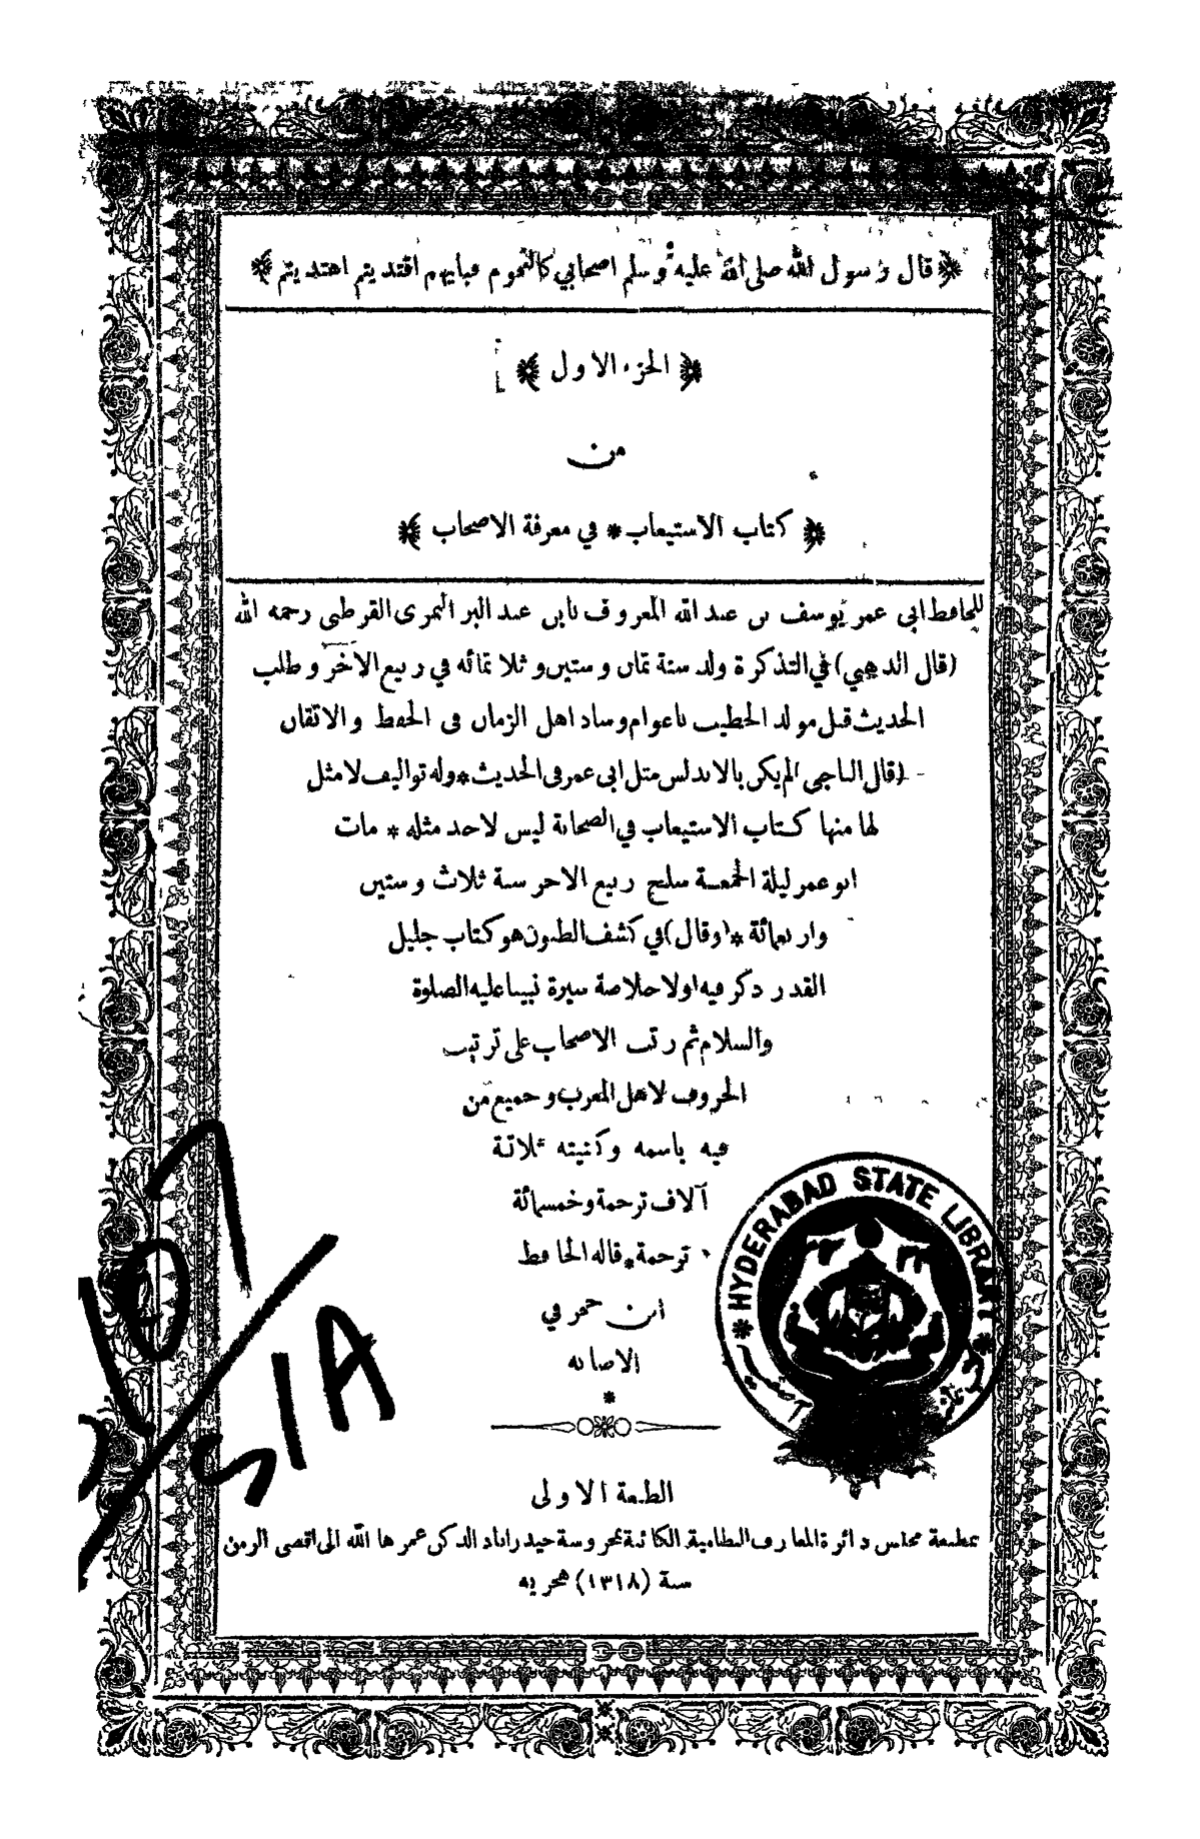 ﴿ قال رسول الله صلى الله عليه وسلم اصحابي كالنجوم فبايهم اقتديتم اهتديتم ﴾
﴿ الجزء الاول ﴾
من
﴿ كتاب الاستيعاب * في معرفة الاصحاب ﴾
للحافظ ابي عمر يوسف بن عبد الله المعروف بابن عبد البر النمرى القرطبى رحمه الله
(قال الذهبي) في التذكرة ولد سنة ثمان وستين وثلاثمائه في ربيع الآخر وطلب
الحديث قبل مولد الخطيب باعوام وساد اهل الزمان فى الحفظ والاتقان
(قال الباجى) لم يكن بالاندلس مثل ابى عمر فى الحديث * وله تواليف لا مثل
لها منها كتاب الاستيعاب في الصحابة ليس لاحد مثله * مات
ابو عمر ليلة الجمعة سلخ ربيع الاخر سنة ثلاث وستين
واربعمائة * (وقال) في كشف الظنون هو كتاب جليل
القدر ذكر فيه اولا خلاصة سيرة نبينا عليه الصلوة
والسلام ثم رتب الاصحاب على ترتيب
الحروف لاهل المغرب وجميع من
فيه باسمه وكنيته ثلاثة
آلاف ترجمة وخمسمائة
ترجمة * قاله الحافظ
ابن حجر في
الاصابه
*
HYDERABAD STATE LIBRARY
SIA
الطبعة الاولى
بمطبعة مجلس دائرة المعارف النظامية الكائنة بمحروسة حيدراباد الدكن عمرها الله الى اقصى الزمن
سنة (١٣١٨) هجريه